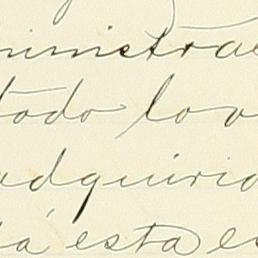 ministrac
todo lo v
adquirid
ia esta es